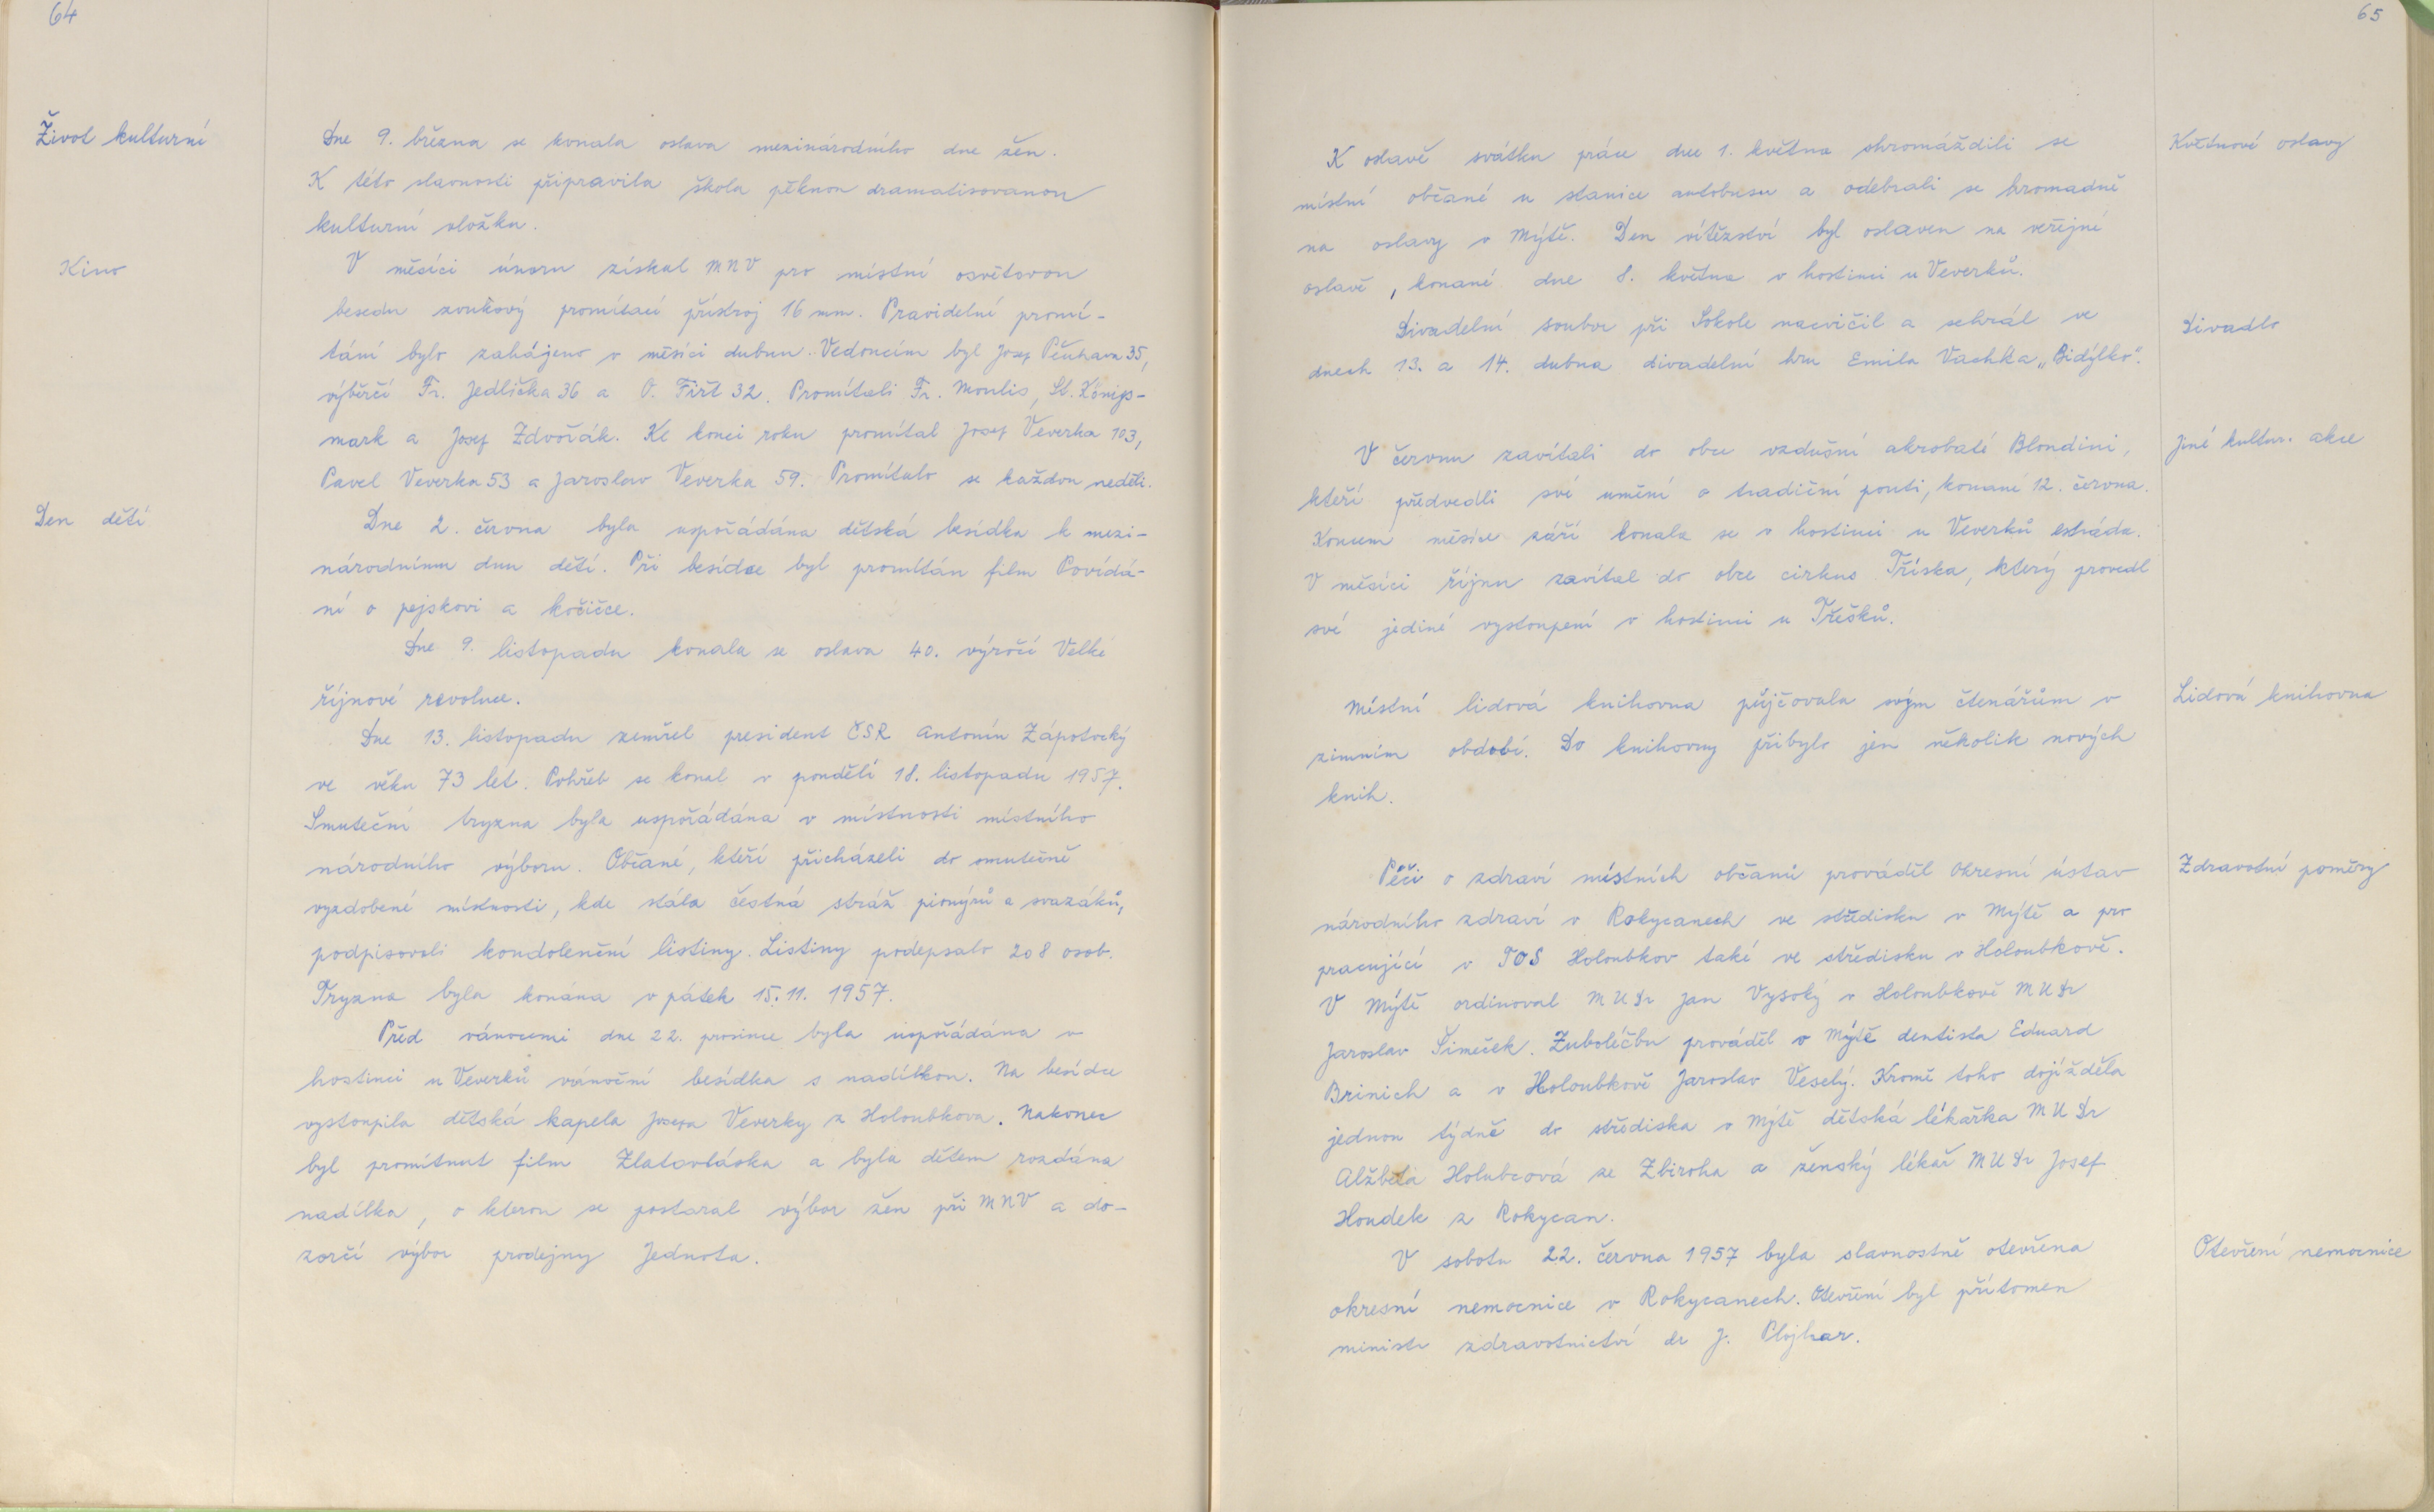 64
Život kulturní
Dne 9. března se konala oslava mezinárodního dne žen.
K této slavnosti připravila škola pěknou dramatisovanou
kulturní vložku.
Kino
V měsíci únoru získal MNV pro místní osvětovou
besedu zvukový promítací přístroj 16 mm. Pravidelné promí-
tání bylo zahájeno v měsíci dubnu. Vedoucím byl Josef 35,
výběrčí Fr. Jedlička 36 a O. Firt 32. Promítali Fr. Moulis, St. Königs-
mark a Josef Zdvořák. Ke konci roku promítal Josef Veverka 103,
Pavel Veverka 53 a Jaroslav Veverka 59. Promítalo se každou neděli.
Den dětí
Dne 2. června byla uspořádána dětská besídka k mezi-
národnímu dnu dětí. Při besídce byl promítán film Povídá-
ní o pejskovi a kočičce.
Dne 9. listopadu konala se oslava 40. výročí Velké
říjnové revoluce.
Dne 13. listopadu zemřel president ČSR Antonín Zápotocký
ve věku 73 let. Pohřeb se konal v pondělí 18. listopadu 1957.
Smuteční tryzna byla uspořádána v místnosti místního
národního výboru. Občané, kteří přicházeli do smutečně
vyzdobené místnosti, kde stála čestná stráž pionýrů a svazáků,
podpisovali kondolenční listiny. Listiny podepsalo 208 osob.
Tryzna byla konána v pátek 15. 11. 1957.
Před vánocemi dne 22. prosince byla uspořádána v
hostinci u Veverků vánoční besídka s nadílkou. Na besídce
vystoupila dětská kapela Josefa Veverky z Holoubkova. Nakonec
byl promítnut film Zlatovláska a byla dětem rozdána
nadílka, o kterou se postaral výbor žen při MNV a do-
zorčí výbor prodejny Jednota.
65
K oslavě svátku práce dne 1. května shromáždili se
Květnové oslavy
místní občané u stanice autobusu a odebrali se hromadně
na oslavy v Mýtě. Den vítězství byl oslaven na veřejné
oslavě, konané dne 8. května v hostinci u Veverků.
Divadelní soubor při Sokole nacvičil a sehrál ve
Divadlo
dnech 13. a 14. dubna divadelní hru Emila Vachka „Bidýlko".
V červnu zavítali do obce vzdušní akrobaté Blondini,
Jiné kultur. akce
kteří předvedli své umění o tradiční pouti, konané 12. června.
Koncem měsíce září konala se v hostinci u Veverků estráda.
V měsíci říjnu zavítal do obce cirkus Tříska, který provedl
své jediné vystoupení v hostinci u Třešků.
Místní lidová knihovna půjčovala svým čtenářům v
Lidová knihovna
zimním období. Do knihovny přibylo jen několik nových
knih.
Péči o zdraví místních občanů prováděl Okresní ústav
Zdravotní poměry
národního zdraví v Rokycanech ve středisku v Mýtě a pro
pracující v TOS Holoubkov také ve středisku v Holoubkově.
V Mýtě ordinoval MUDr Jan Vysoký v Holoubkově MUDr
Jaroslav Šimeček. Zuboléčbu prováděl v Mýtě dentista Eduard
Brinich a v Holoubkově Jaroslav Veselý. Kromě toho dojížděla
jednou týdně do střediska v Mýtě dětská lékařka MUDr
Alžběta Holubcová ze Zbiroha a ženský lékař MUDr Josef
Houdek z Rokycan.
V sobotu 22. června 1957 byla slavnostně otevřena
Otevření nemocnice
okresní nemocnice v Rokycanech. Otevření byl přítomen
ministr zdravotnictví dr J. Plojhar.